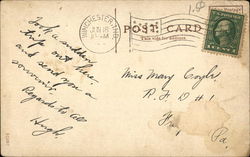 WINCHESTER, IND.
JUN 18
POST CARD
This side for address.
Took a sudden
trip out here
and send you a
souvenir.
Regards to all
Hugh.
Miss Mary Coyle,
R. F. D # 1
Pa.